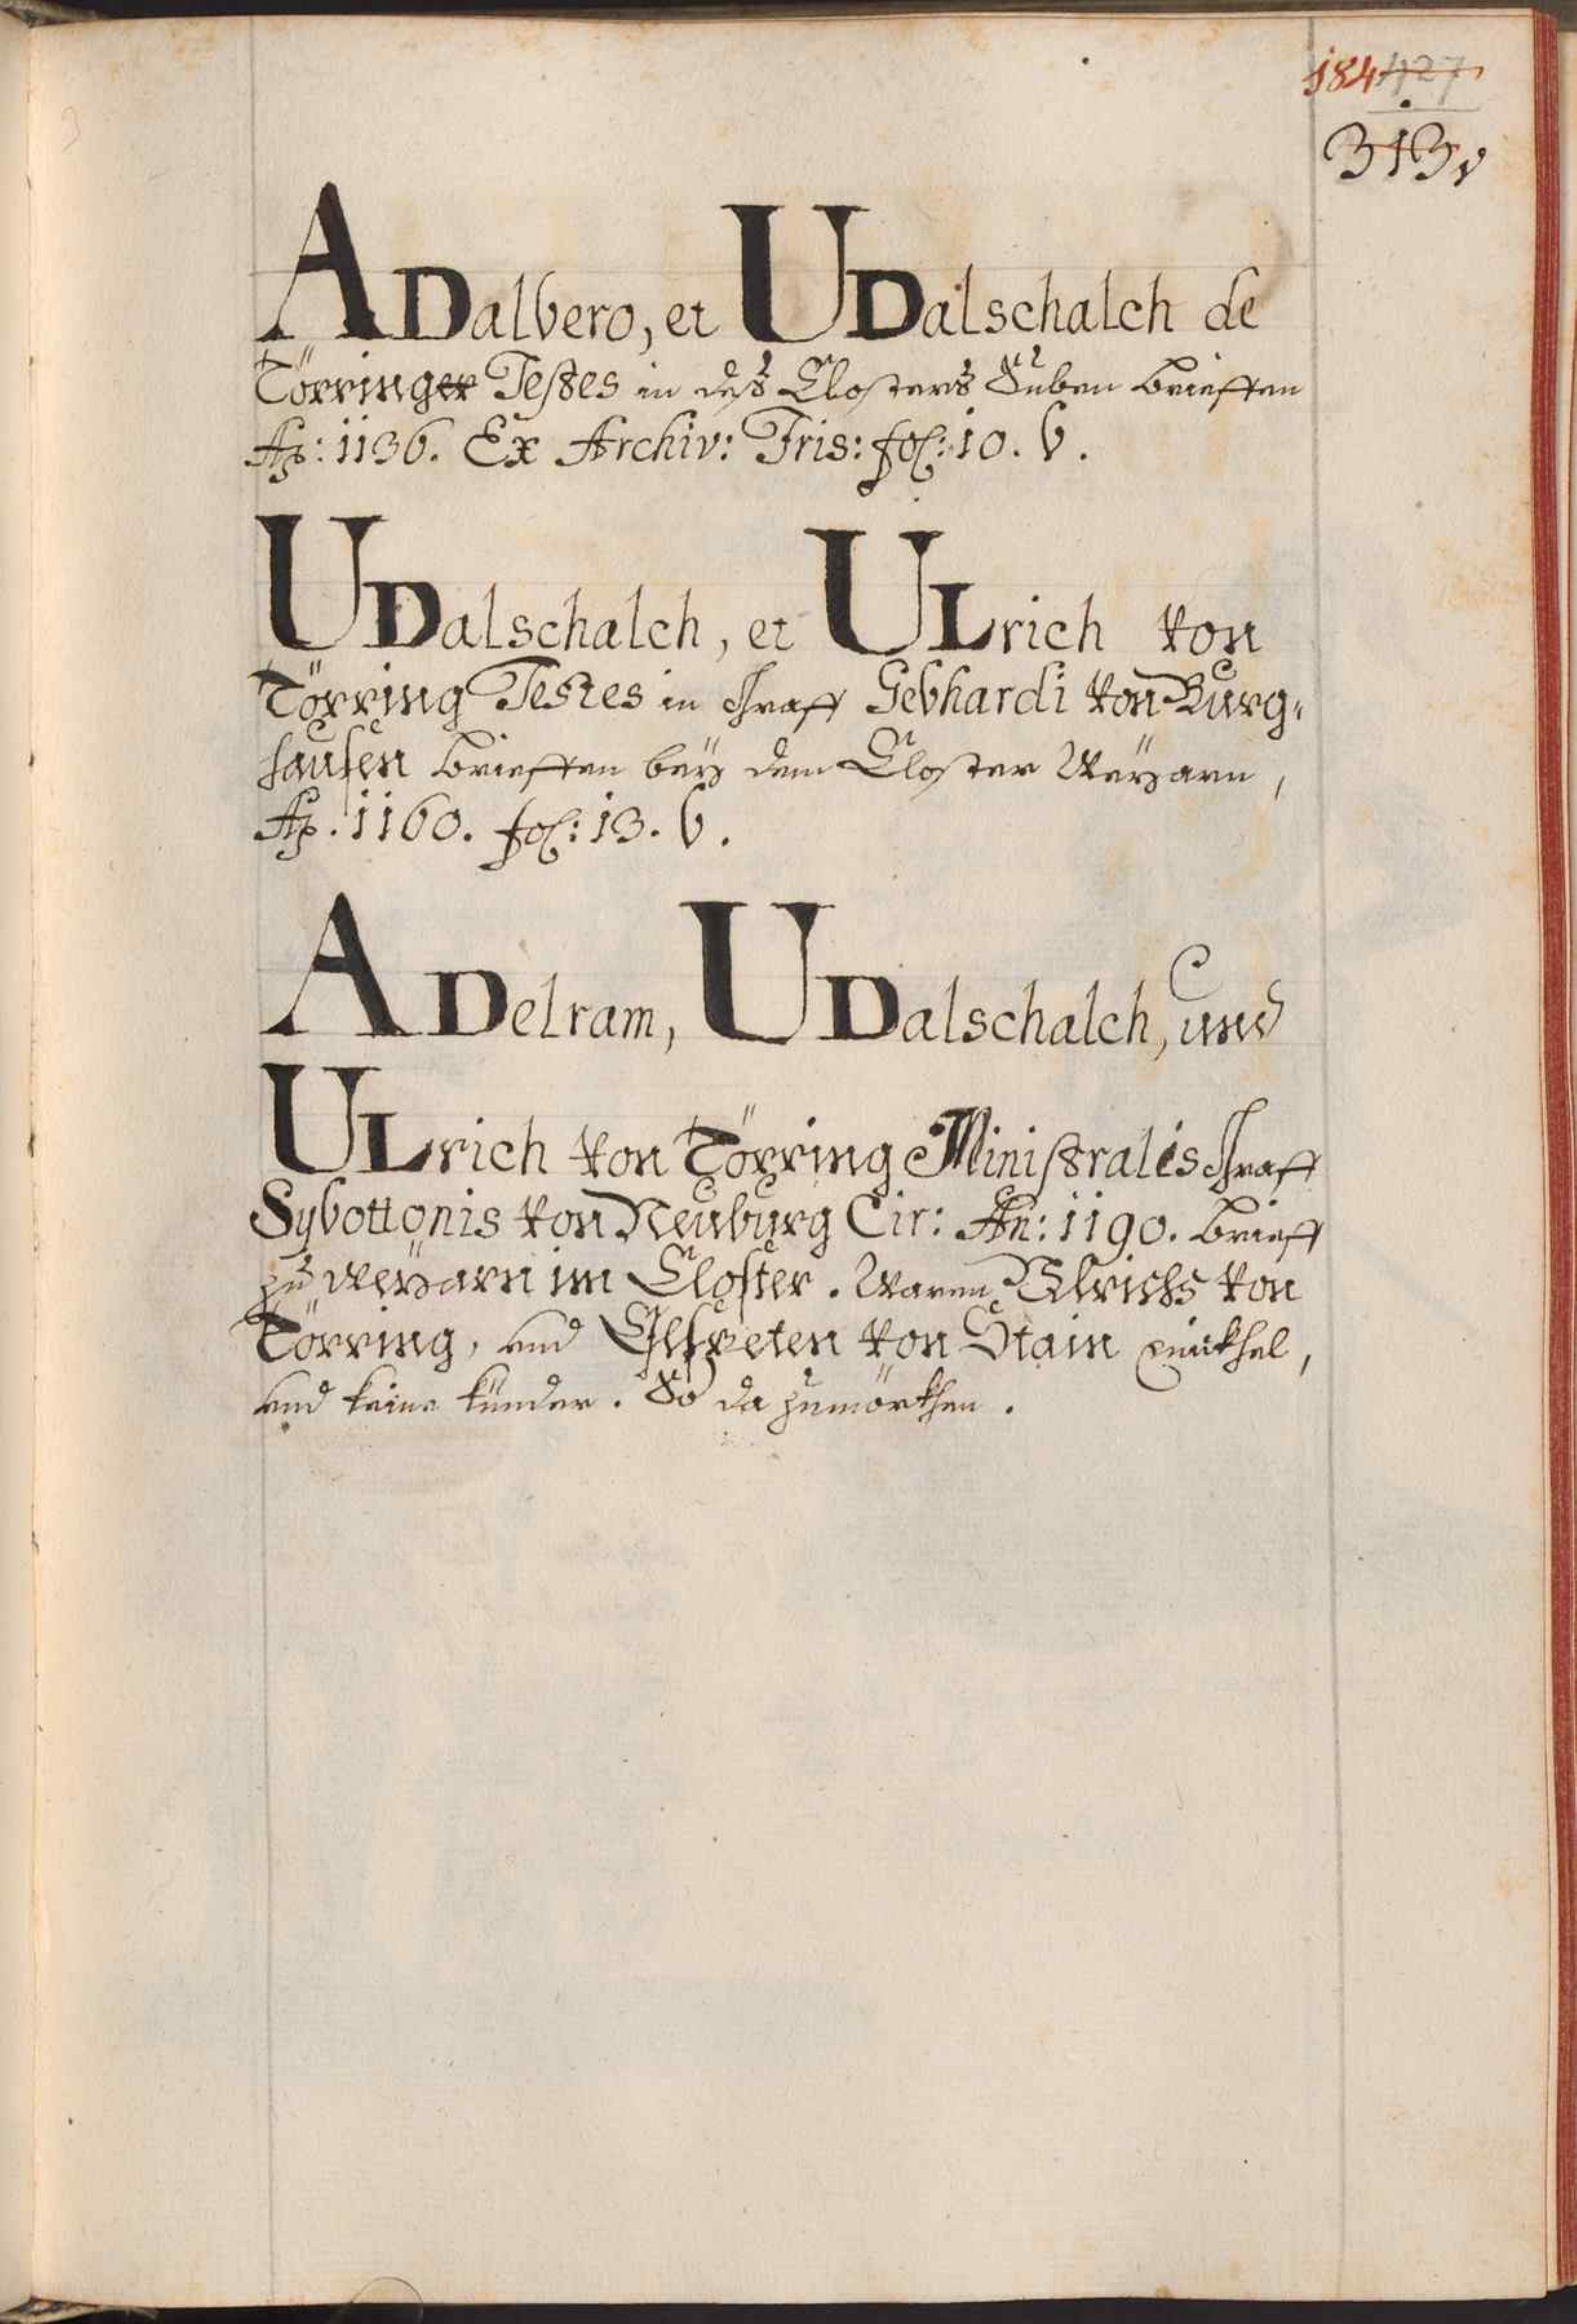 184 427
313v
ADalbero, et UDalschalch de
Törringer Testes in deß Closters Suben brieffen
Aō: 1136. Ex Archiv: Fris: fol: 10. b.
UDalschalch, et ULrich von
Törring Testes in Graff Gebhardi von Burg-
hausen brieffen beÿ dem Closter Weÿarn,
Aō. 1160. fol: 13. b.
ADelram, UDalschalch, und
ULrich von Törring Ministralis Graff
Sybottonis von Neuburg Cir: An: 1190. brieff
zu Weÿarn im Closter. Waren Ulrichs von
Törring, und von Stain
und keine künder. So da zumörkhen.